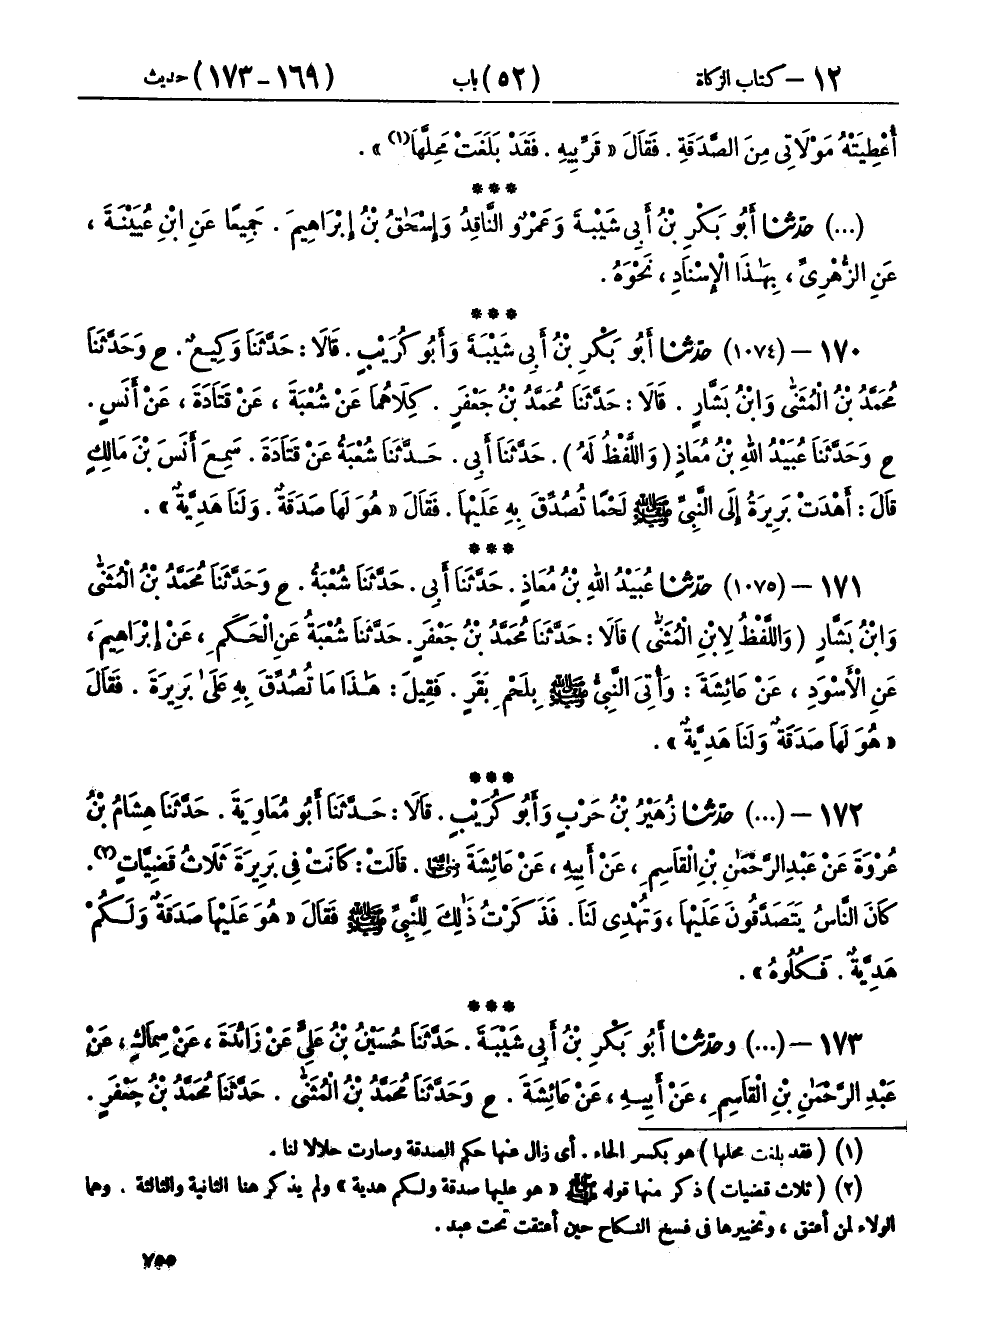 ١٢ – كتاب الزكاة (٥٢) باب (١٦٩ – ١٧٣) حديث
أُعْطِيَتْهُ مَوْلَاتِى مِنَ الصَّدَقَةِ . فَقَالَ « قَرِّبِيهِ . فَقَدْ بَلَغَتْ مَحِلَّهَا(١) » .
***
(...) حدّثنا أَبُو بَكْرِ بْنُ أَبِى شَيْبَةَ وَعَمْرٌو النَّاقِدُ وَإِسْحَٰقُ بْنُ إِبْرَاهِيمَ . جَمِيعًا عَنِ ابْنِ عُيَيْنَةَ ،
عَنِ الزُّهْرِىِّ ، بِهَٰذَا الْإِسْنَادِ ، نَحْوَهُ .
***
١٧٠ – (١٠٧٤) حدّثنا أَبُو بَكْرِ بْنُ أَبِى شَيْبَةَ وَأَبُو كُرَيْبٍ . قَالَا : حَدَّثَنَا وَكِيعٌ . ح وَحَدَّثَنَا
مُحَمَّدُ بْنُ الْمُثَنَّىٰ وَابْنُ بَشَّارٍ . قَالَا : حَدَّثَنَا مُحَمَّدُ بْنُ جَعْفَرٍ . كِلَاهُمَا عَنْ شُعْبَةَ ، عَنْ قَتَادَةَ ، عَنْ أَنَسٍ .
ح وَحَدَّثَنَا عُبَيْدُ اللهِ بْنُ مُعَاذٍ ( وَاللَّفْظُ لَهُ ) . حَدَّثَنَا أَبِى . حَدَّثَنَا شُعْبَةُ عَنْ قَتَادَةَ . سَمِعَ أَنَسَ بْنَ مَالِكٍ
قَالَ : أَهْدَتْ بَرِيرَةُ إِلَى النَّبِىِّ ﷺ لَحْمًا تُصُدِّقَ بِهِ عَلَيْهَا . فَقَالَ « هُوَ لَهَا صَدَقَةٌ . وَلَنَا هَدِيَّةٌ » .
***
١٧١ – (١٠٧٥) حدّثنا عُبَيْدُ اللهِ بْنُ مُعَاذٍ . حَدَّثَنَا أَبِى . حَدَّثَنَا شُعْبَةُ . ح وَحَدَّثَنَا مُحَمَّدُ بْنُ الْمُثَنَّىٰ
وَابْنُ بَشَّارٍ ( وَاللَّفْظُ لِابْنِ الْمُثَنَّىٰ ) قَالَا : حَدَّثَنَا مُحَمَّدُ بْنُ جَعْفَرٍ . حَدَّثَنَا شُعْبَةُ عَنِ الْحَكَمِ ، عَنْ إِبْرَاهِيمَ ،
عَنِ الْأَسْوَدِ ، عَنْ عَائِشَةَ : وَأُتِىَ النَّبِىُّ ﷺ بِلَحْمِ بَقَرٍ . فَقِيلَ : هَٰذَا مَا تُصُدِّقَ بِهِ عَلَىٰ بَرِيرَةَ . فَقَالَ
« هُوَ لَهَا صَدَقَةٌ وَلَنَا هَدِيَّةٌ » .
***
١٧٢ – (...) حدّثنا زُهَيْرُ بْنُ حَرْبٍ وَأَبُو كُرَيْبٍ . قَالَا : حَدَّثَنَا أَبُو مُعَاوِيَةَ . حَدَّثَنَا هِشَامُ بْنُ
عُرْوَةَ عَنْ عَبْدِ الرَّحْمَٰنِ بْنِ الْقَاسِمِ ، عَنْ أَبِيهِ ، عَنْ عَائِشَةَ رضي الله عنها . قَالَتْ : كَانَتْ فِى بَرِيرَةَ ثَلَاثُ قَضِيَّاتٍ(٢) .
كَانَ النَّاسُ يَتَصَدَّقُونَ عَلَيْهَا ، وَتُهْدِى لَنَا . فَذَكَرْتُ ذَٰلِكَ لِلنَّبِىِّ ﷺ فَقَالَ « هُوَ عَلَيْهَا صَدَقَةٌ وَلَكُمْ
هَدِيَّةٌ . فَكُلُوهُ » .
***
١٧٣ – (...) وحدّثنا أَبُو بَكْرِ بْنُ أَبِى شَيْبَةَ . حَدَّثَنَا حُسَيْنُ بْنُ عَلِىٍّ عَنْ زَائِدَةَ ، عَنْ سِمَاكٍ ، عَنْ
عَبْدِ الرَّحْمَٰنِ بْنِ الْقَاسِمِ ، عَنْ أَبِيهِ ، عَنْ عَائِشَةَ . ح وَحَدَّثَنَا مُحَمَّدُ بْنُ الْمُثَنَّىٰ . حَدَّثَنَا مُحَمَّدُ بْنُ جَعْفَرٍ .
(١) ( فقد بلغت محلها ) هو بكسر الحاء . أى زال عنها حكم الصدقة وصارت حلالا لنا .
(٢) ( ثلاث قضيات ) ذكر منها قوله ﷺ « هو عليها صدقة ولكم هدية » ولم يذكر هنا الثانية والثالثة . وهما
الولاء لمن أعتق ، وتخييرها فى فسخ النكاح حين أعتقت تحت عبد .
٧٥٥